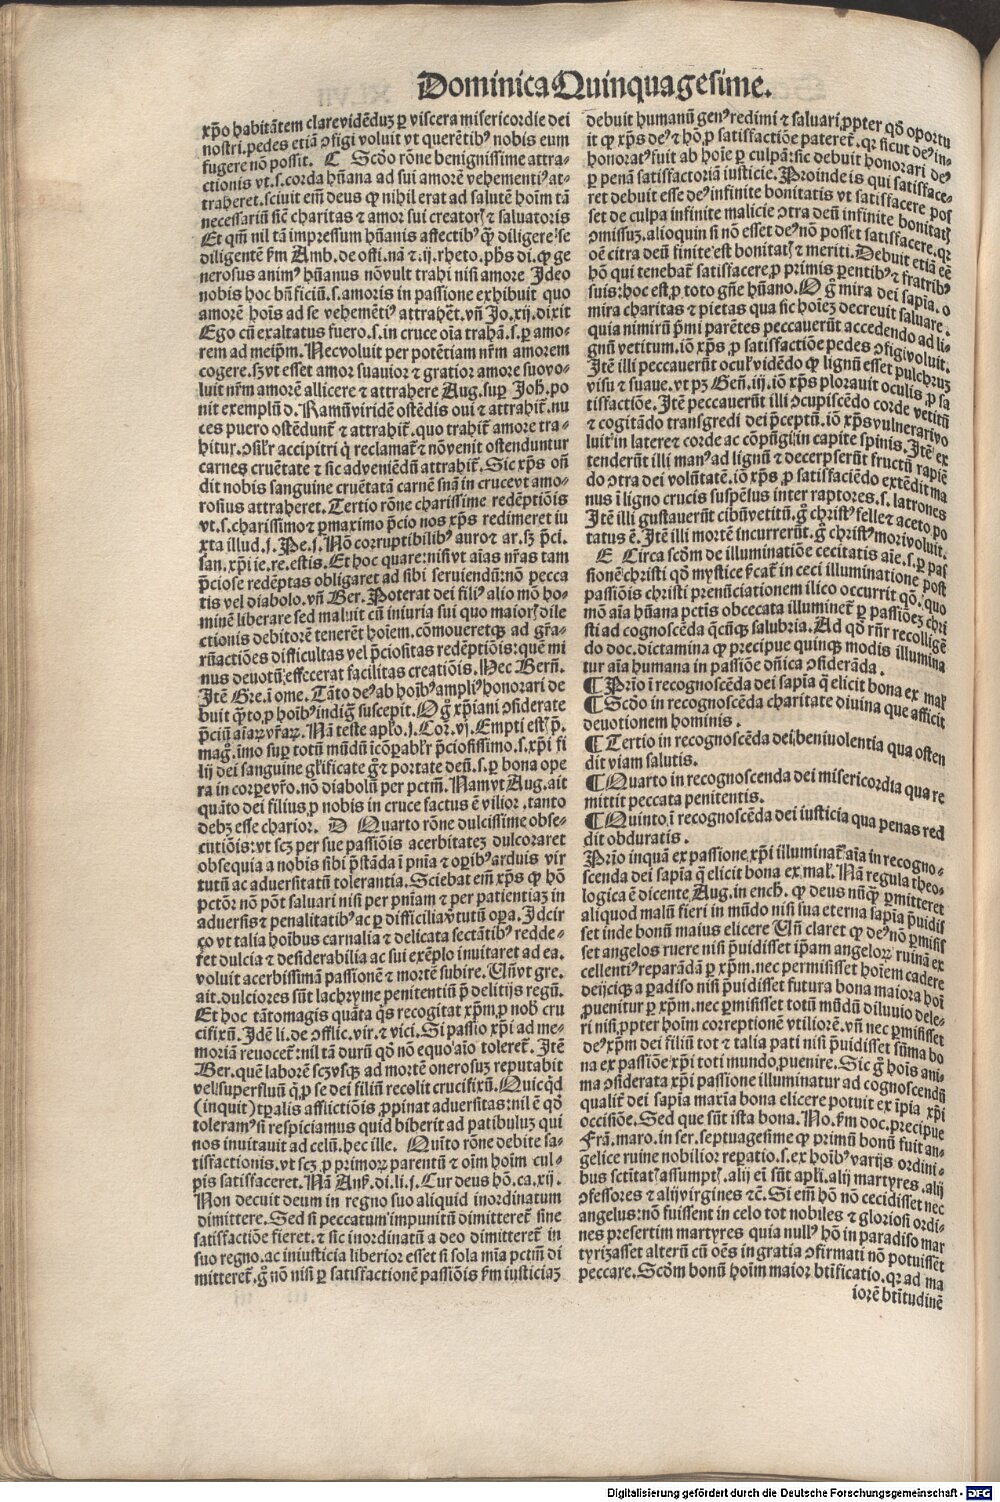 Dominica Quinquagesime.
xp̄o habitātem clare vidēduꝫ ꝑ viscera misericordie dei
nostri. pedes etiā ꝯfigi voluit vt querētibꝰ nobis eum
fugere nō possit. C Scd̄o rōne benignissime attra-
ctionis vt. s. corda hūana ad sui amorē vehementiꝰ at-
traheret. sciuit em̄ deus ꝙ nihil erat ad salutē hoīm tā
necessariū sic̄ charitas ⁊ amor sui creatorꝭ ⁊ saluatoris
Et qm̄ nil tā impressum hūanis affectibꝰ ꝙ̄ diligere se
diligentē ẜm Amb. de offi. nā ⁊. ij. rheto. ph̄s di. ꝙ ge
nerosus animꝰ hūanus nō vult trahi nisi amore Ideo
nobis hoc bn̄ficiū. s. amoris in passione exhibuit quo
amorē hoīs ad se vehemētiꝰ attrahēt. vn̄ Jo. xij. dixit
Ego cū exaltatus fuero. s. in cruce oīa trahā. s. ꝑ amo-
rem ad meip̄m. Nec voluit per potētiam nr̄m amorem
cogere. sꝫ vt esset amor suauior ⁊ gratior amore suo vo-
luit nr̄m amorē allicere ⁊ attrahere Aug. suꝑ Joh̄. po
nit exemplū d. Ramū viridē ostēdis oui ⁊ attrahit̄. nu
ces puero ostēdunt̄ ⁊ attrahit̄. quo trahit̄ amore tra-
hitur. ꝯsil̄r accipitri q̄ reclamat̄ ⁊ nō venit ostenduntur
carnes cruētate ⁊ sic adveniēdū attrahit̄. Sic xp̄s on̄
dit nobis sanguine cruētatā carnē suā in cruce vt amo-
rosius attraheret. Tertio rōne charissime redēptiōis
vt. s. charissimo ⁊ ꝑmaximo p̄cio nos xp̄s redimeret iu
xta illud. j. Pe. j. Nō corruptibilibꝰ auro ⁊ ar. sꝫ p̄ci.
san. xp̄i ie. re. estis. Et hoc quare: nisi vt aīas nr̄as tam
p̄ciose redēptas obligaret ad sibi seruiendū: nō pecca
tis vel diabolo. vn̄ Ber. Poterat dei filiꝰ alio mō ho-
minē liberare sed maluit cū iniuria sui quo maiorꝭ dile
ctionis debitorē tenerēt hoīem. cōmoueretqꝫ ad gr̄a-
rūactiōes difficultas vel p̄ciositas redēptiōis: quē mi
nus deuotū effecerat facilitas creatiōis. Nec Bern̄.
Itē Gre. ī ome. Tāto deꝰ ab hoībꝰ ampliꝰ honorari de
buit q̄to, ꝓ hoībꝰ indigꝫ suscepit. O gͦ xp̄iani ꝯsiderate
p̄ciū aīaꝝ vr̄aꝝ. Nā teste apl̄o. j. Cor. vj. Empti estꝭ p̄.
maḡ. imo suꝑ totū mūdū īcōparabl̄r p̄ciosissimo. s. xp̄i fi
lij dei sanguine gl̄ificate gͦ ⁊ portate deū. s. ꝑ bona ope
ra in corꝑe vr̄o. nō diabolū per pctm̄. Nam vt Aug. ait
quāto dei filius ꝓ nobis in cruce factus ē vilior. tanto
debꝫ esse charior. D Quarto rōne dulcissime obse-
cutiōis: vt scꝫ per sue passiōis acerbitatē dulcoraret
obsequia a nobis sibi p̄stāda ī pn̄ia ⁊ oꝑibꝰ arduis vir
tutū ac aduersitatū tolerantia. Sciebat em̄ xp̄s ꝙ hō
pctōr nō pōt saluari nisi per pn̄iam ⁊ per patientiaꝫ in
aduersis ⁊ penalitatibꝰ ac ꝑ difficilia v̄tutū oꝑa. Idcir
ço vt talia hoībus carnalia ⁊ delicata sectātibꝰ redde-
ret̄ dulcia ⁊ desiderabilia ac sui exēplo inuitaret ad ea.
voluit acerbissimā passionē ⁊ mortē subire. Un̄ vt gre.
ait. dulciores sūt lachryme penitentiū p̄ delitijs regū.
Et hoc tātomagis quāta q̄s recogitat xp̄m ꝓ nob̄ cru
cifixū. Idē li. de ꝯflic. vir. ⁊ vici. Si passio xp̄i ad me-
moriā reuocet̄: nil tā durū qd̄ nō equo aīo toleret̄. Itē
Ber. quē laborē scꝫ vsqꝫ ad mortē onerosuꝫ reputabit
vel superfluū q̄, ꝓ se dei filiū recolit crucifixū. Quicq̄d
(inquit) tp̄alis afflictiōis, ꝓpinat aduersitas: nil ē qd̄
toleramꝰ si respiciamus quid biberit ad patibuluꝫ qui
nos inuitauit ad celū. hec ille. Quīto rōne debite sa-
tisfactionis. vt scꝫ, ꝓ primoꝝ parentū ⁊ oīm hoīm cul-
pis satisfaceret. Nā Anẜ. di. li. j. Cur deus hō. ca. xij.
Non decuit deum in regno suo aliquid inordinatum
dimittere. Sed si peccatum impunitū dimitteret̄ sine
satisfactiōe fieret. ⁊ sic inordinatū a deo dimitteret̄ in
suo regno. ac iniusticia liberior esset si sola mīa pctm̄ di
mitteret̄. gͦ nō nisi ꝑ satisfactionē passiōis ẜm iusticiaꝫ
debuit humanū genꝰ redimi ⁊ saluari, ꝓpter qd̄ oportu
it ꝙ xp̄s deꝰ ⁊ hō, ꝓ satisfactiōe pateret̄. qr sicut deꝰ in-
honoratꝰ fuit ab hoīe ꝑ culpā: sic debuit honorari deꝰ
ꝑ penā satisfactoriā iusticie. Proinde is qui satisface-
ret debuit esse deꝰ infinite bonitatis vt satisfacere pos
set de culpa infinite malicie ꝯtra deū infinite bonitatꝭ
ꝯmissuꝫ. alioquin si nō esset deꝰ nō posset satisfacere. qr
oē citra deū finite est bonitatꝭ ⁊ meriti. Debuit etiā eē
hō qui tenebat̄ satisfacere, ꝓ primis ꝑentibꝰ ⁊ fratribꝰ
suis: hoc est, ꝓ toto gn̄e hūano. O gͦ mira dei sapīa. o
mira charitas ⁊ pietas qua sic hoīeꝫ decreuit saluare.
quia nimirū p̄mi parētes peccauerūt accedendo ad li-
gnū vetitum. iō xp̄s, ꝓ satisfactiōe pedes ꝯfigi voluit.
Itē illi peccauerūt ocul̄ vidēdo ꝙ lignū esset pulchruꝫ
visu ⁊ suaue. vt pꝫ Gen̄. iij. iō xp̄s plorauit oculis, ꝓ sa
tisfactiōe. Itē peccauerūt illi ꝯcupiscēdo corde vetitū
⁊ cogitādo transgredi dei p̄ceptū. iō xp̄s vulnerari vo
luit in latere ⁊ corde ac cōpūgi in capite spinis. Itē ex
tenderūt illi manꝰ ad lignū ⁊ decerpserūt fructū rapiē
do ꝯtra dei volūtatē. iō xp̄s, ꝓ satisfaciēdo extēdit ma
nus ī ligno crucis suspēsus inter raptores. s. latrones
Itē illi gustauerūt cibū vetitū. gͦ christꝰ felle ⁊ aceto po
tatus ē. Itē illi mortē incurrerūt. gͦ christꝰ mori voluit.
E Circa scd̄m de illuminatiōe cecitatis aīe. s. ꝑ pas
sionē christi qd̄ mystice ẜcat̄ in ceci illuminatione post
passiōis christi prenūciationem ilico occurrit qō. quo
mō aīa hūana pctīs obcecata illuminet̄ ꝑ passiōeꝫ chri
sti ad cognoscēda q̄cūqꝫ salubria. Ad qd̄ rn̄r recolligē
do doc. dictamina ꝙ precipue quinqꝫ modis illumina
tur aīa humana in passiōe dn̄ica ꝯsiderāda.
¶ Prīo ī recognoscēda dei sapīa q̄ elicit bona ex mal̄
¶ Scd̄o in recognoscēda charitate diuina que afficit
deuotionem hominis.
¶ Tertio in recognoscēda dei beniuolentia qua osten
dit viam salutis.
¶ Quarto in recognoscenda dei misericordia qua re
mittit peccata penitentis.
¶ Quinto ī recognoscēda dei iusticia qua penas red
dit obduratis.
Prīo inquā ex passione xp̄i illuminat̄ aīa in recogno-
scenda dei sapīa q̄ elicit bona ex mal̄. Nā regula theo-
logica ē dicente Aug. in ench̄. ꝙ deus nūꝙ̄ ꝑmitteret
aliquod malū fieri in mūdo nisi sua eterna sapīa p̄uidis
set inde bonū maius elicere Un̄ claret ꝙ deꝰ nō ꝑmisis
set angelos ruere nisi p̄uidisset ip̄am angeloꝝ ruinā ex
cellentiꝰ reparādā ꝑ xp̄m. nec permisisset hoīem cadere
deijciqꝫ a paradiso nisi p̄uidisset futura bona maiora hoī
ꝓuenitur ꝑ xp̄m. nec ꝑmisisset totū mūdū diluuio dele-
ri nisi, ꝓpter hoīm correptionē vtiliorē. vn̄ nec ꝑmisisset
deꝰ xp̄m dei filiū tot ⁊ talia pati nisi p̄uidisset sūma bo
na ex passiōe xp̄i toti mundo, ꝓuenire. Sic gͦ hoīs ani-
ma ꝯsiderata xp̄i passione illuminatur ad cognoscendū
qualit̄ dei sapīa maxīa bona elicere potuit ex īpia xp̄i
occisiōe. Sed que sūt ista bona. No. ẜm doc. precipue
Frā. maro. in ser. septuagesime ꝙ primū bonū fuit an-
gelice ruine nobilior reꝑatio. s. ex hoībꝰ varijs ordini-
bus sctītatꝭ assumptꝭ. alij ei sūt apl̄i. alij martyres. alij
ꝯfessores ⁊ alij virgines ⁊c̄. Si em̄ hō nō cecidisset nec
angelus: nō fuissent in celo tot nobiles ⁊ gloriosi ordi-
nes presertim martyres quia nullꝰ hō in paradiso mar
tyrizasset alterū cū oēs in gratia ꝯfirmati nō potuissēt
peccare. Scd̄m bonū hoīm maior btīficatio. qr ad ma
iorē btītudinē
Digitalisierung gefördert durch die Deutsche Forschungsgemeinschaft - DFG